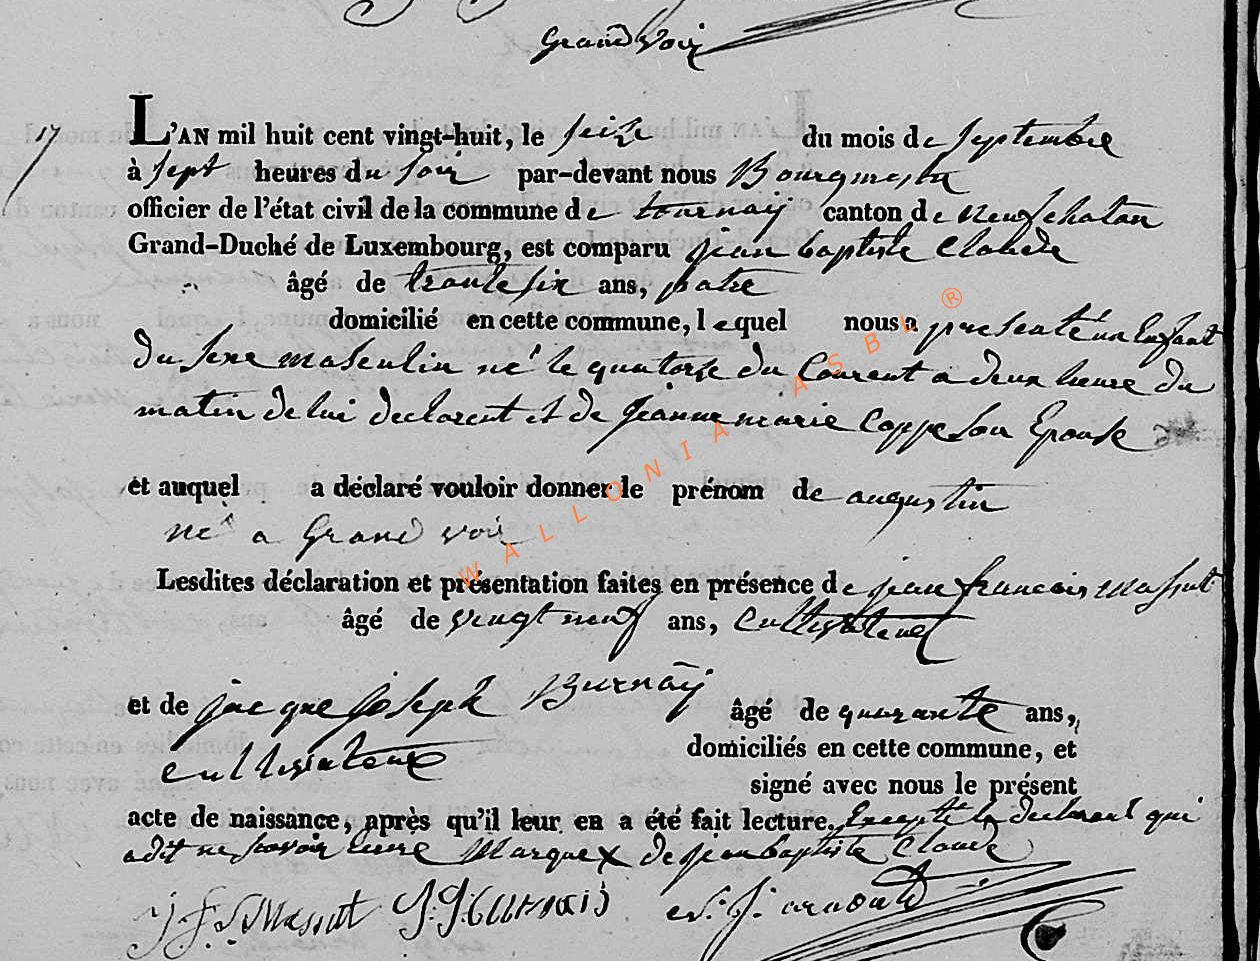 Grand Voir
17
L'AN mil huit cent vingt-huit, le seize du mois de septembre
à sept heures du soir par-devant nous Bourgmestre
officier de l'état civil de la commune de tournay canton de neufchatau
Grand-Duché de Luxembourg, est comparu jean baptiste Claude
âgé de trante six ans, patre
domicilié en cette commune, lequel nous a presenté un Enfant
du sexe masculin né le quatorse du Courent a deux heure du
matin de lui declarent et de Jeanne marie Coppe son Epouse
et auquel a déclaré vouloir donner le prénom de augustin
né a Grand voir
Lesdites déclaration et présentation faites en présence de jean francois massut
âgé de vingt neuf ans, Cultivateur
et de jacque joseph Burnaÿ âgé de quarante ans,
cultivateur domiciliés en cette commune, et
signé avec nous le présent
acte de naissance, après qu'il leur en a été fait lecture. Excepté le declarant qui
a dit ne savoir Ecrire Marque X de jean baptiste Claude
J F S Massut J. J. Burnaÿ
WALLONIA ASBL ®